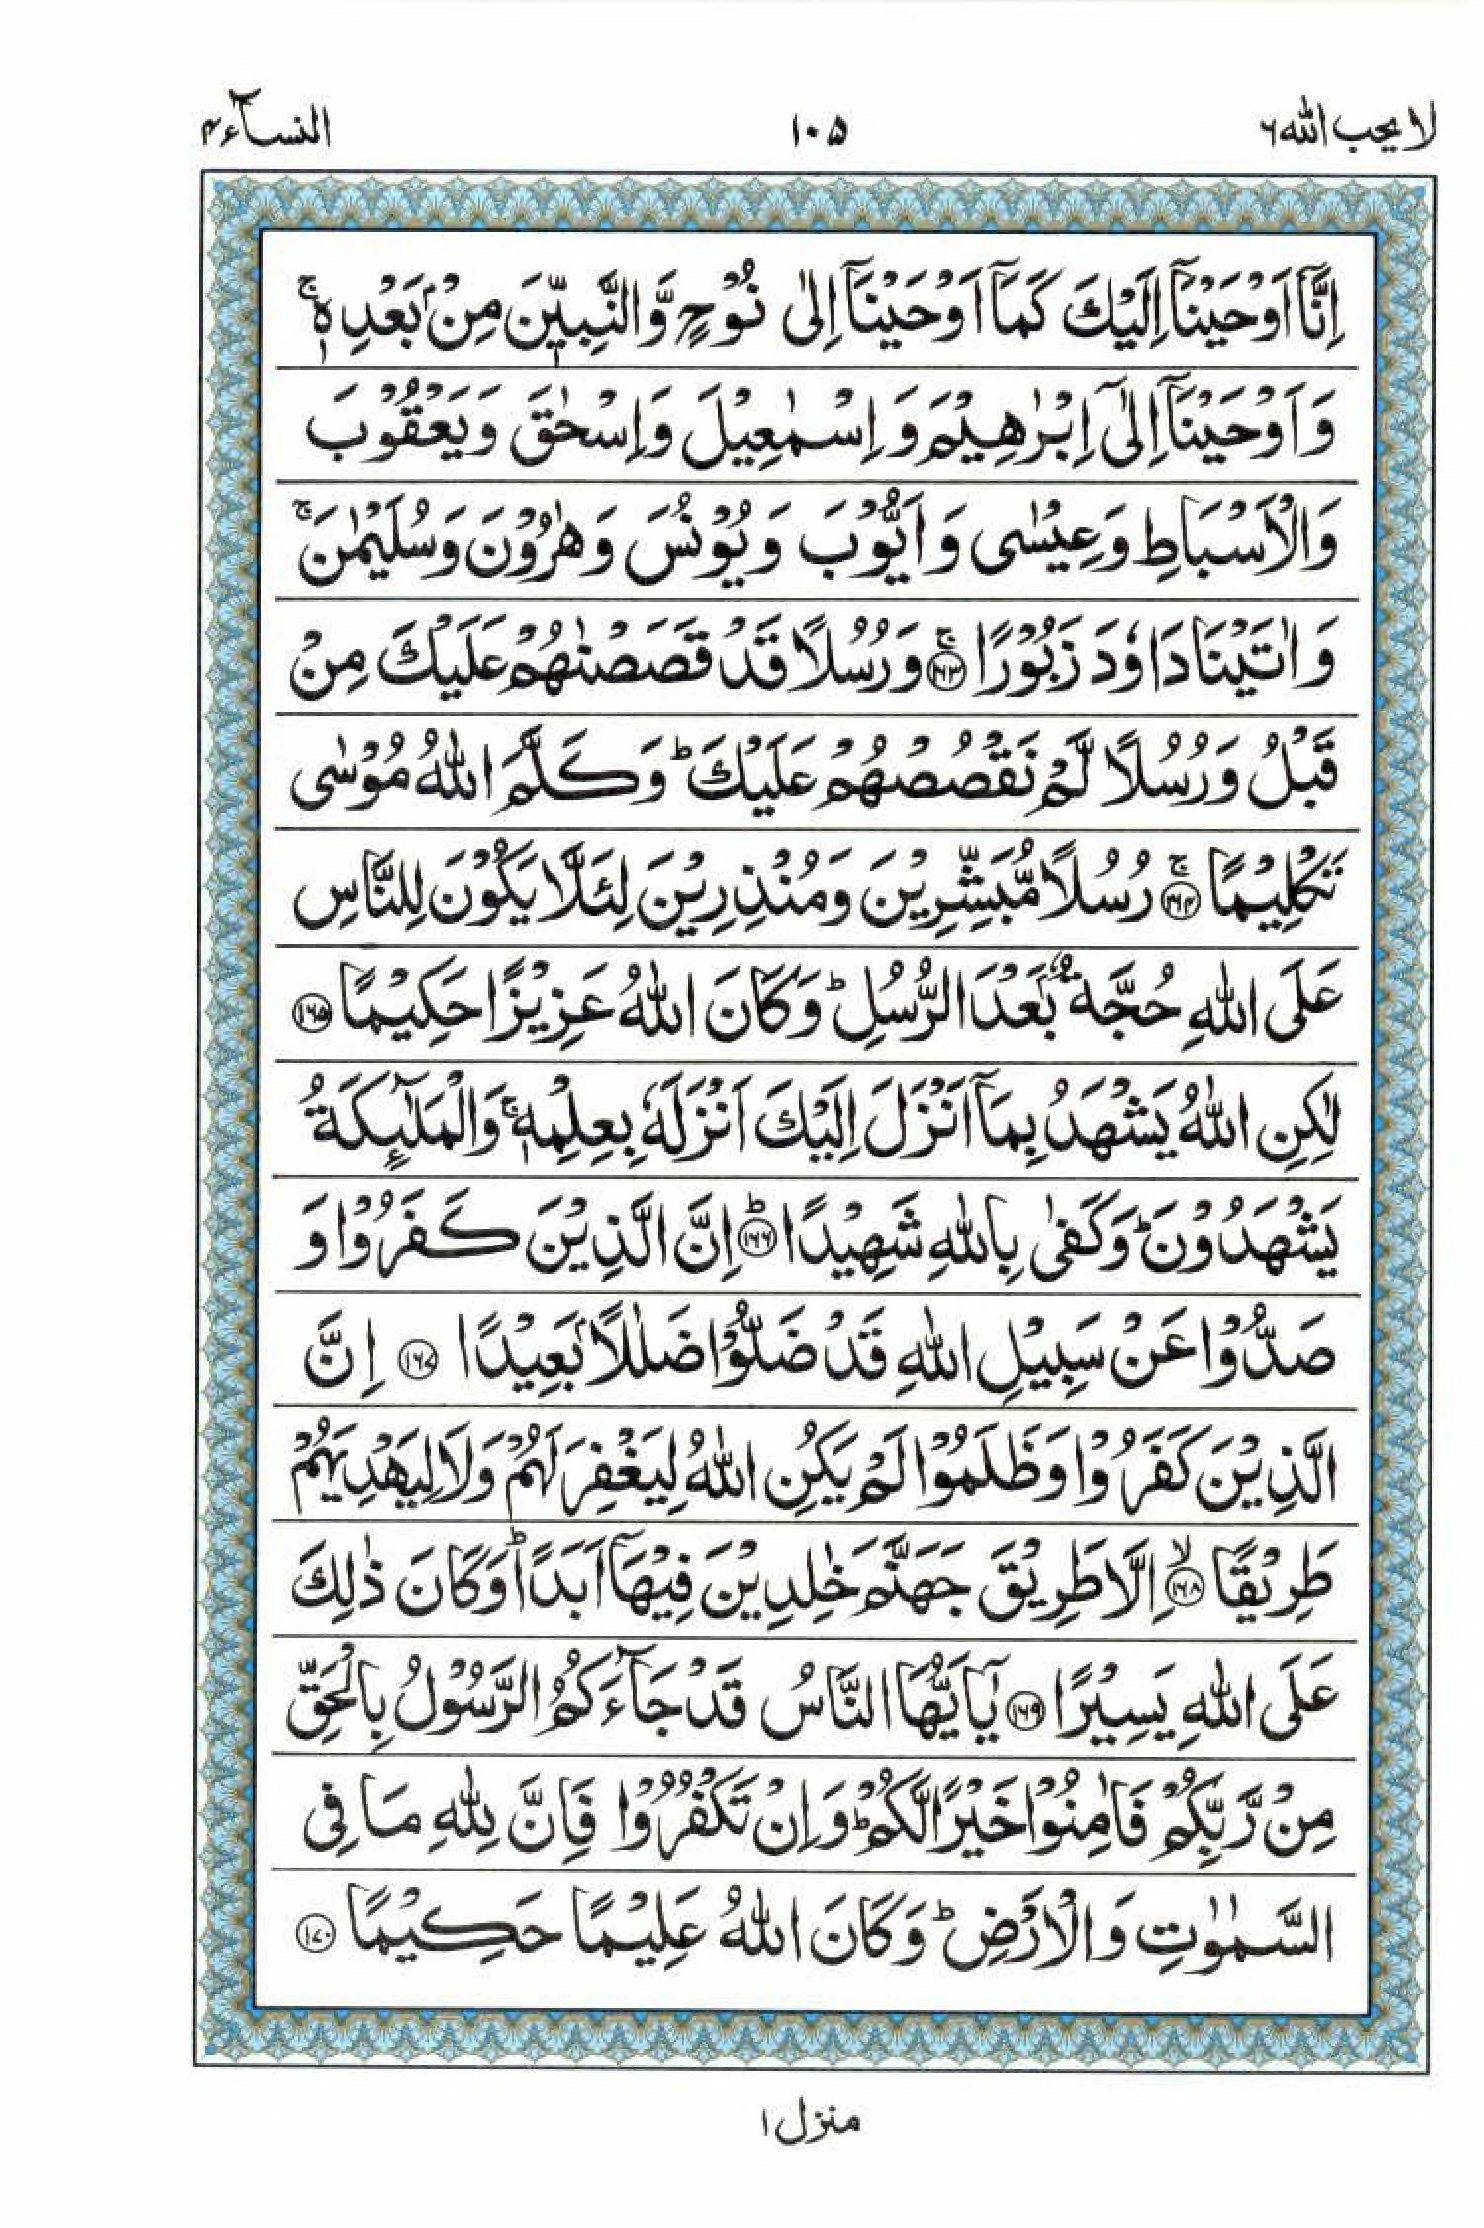 لا يحب الله ٦
١٠٥
النسآء ٤
اِنَّاۤ اَوْحَيْنَاۤ اِلَيْكَ كَمَاۤ اَوْحَيْنَاۤ اِلٰى نُوْحٍ وَّالنَّبِيّٖنَ مِنْۢ بَعْدِهٖ ۚ
وَاَوْحَيْنَاۤ اِلٰٓى اِبْرٰهِيْمَ وَاِسْمٰعِيْلَ وَاِسْحٰقَ وَيَعْقُوْبَ
وَالْاَسْبَاطِ وَعِيْسٰى وَاَيُّوْبَ وَيُوْنُسَ وَهٰرُوْنَ وَسُلَيْمٰنَ ۚ
وَاٰتَيْنَا دَاوٗدَ زَبُوْرًا ۚ ﴿١٦٣﴾ وَرُسُلًا قَدْ قَصَصْنٰهُمْ عَلَيْكَ مِنْ
قَبْلُ وَرُسُلًا لَّمْ نَقْصُصْهُمْ عَلَيْكَ ؕ وَكَلَّمَ اللّٰهُ مُوْسٰى
تَكْلِيْمًا ۚ ﴿١٦٤﴾ رُسُلًا مُّبَشِّرِيْنَ وَمُنْذِرِيْنَ لِئَلَّا يَكُوْنَ لِلنَّاسِ
عَلَى اللّٰهِ حُجَّةٌۢ بَعْدَ الرُّسُلِ ؕ وَكَانَ اللّٰهُ عَزِيْزًا حَكِيْمًا ﴿١٦٥﴾
لٰكِنِ اللّٰهُ يَشْهَدُ بِمَاۤ اَنْزَلَ اِلَيْكَ اَنْزَلَهٗ بِعِلْمِهٖ ۚ وَالْمَلٰٓئِكَةُ
يَشْهَدُوْنَ ؕ وَكَفٰى بِاللّٰهِ شَهِيْدًا ؕ ﴿١٦٦﴾ اِنَّ الَّذِيْنَ كَفَرُوْا وَ
صَدُّوْا عَنْ سَبِيْلِ اللّٰهِ قَدْ ضَلُّوْا ضَلٰلًاۢ بَعِيْدًا ﴿١٦٧﴾ اِنَّ
الَّذِيْنَ كَفَرُوْا وَظَلَمُوْا لَمْ يَكُنِ اللّٰهُ لِيَغْفِرَ لَهُمْ وَلَا لِيَهْدِيَهُمْ
طَرِيْقًا ۙ ﴿١٦٨﴾ اِلَّا طَرِيْقَ جَهَنَّمَ خٰلِدِيْنَ فِيْهَاۤ اَبَدًا ؕ وَكَانَ ذٰلِكَ
عَلَى اللّٰهِ يَسِيْرًا ﴿١٦٩﴾ يٰۤاَيُّهَا النَّاسُ قَدْ جَآءَكُمُ الرَّسُوْلُ بِالْحَقِّ
مِنْ رَّبِّكُمْ فَاٰمِنُوْا خَيْرًا لَّكُمْ ؕ وَاِنْ تَكْفُرُوْا فَاِنَّ لِلّٰهِ مَا فِى
السَّمٰوٰتِ وَالْاَرْضِ ؕ وَكَانَ اللّٰهُ عَلِيْمًا حَكِيْمًا ﴿١٧٠﴾
منزل ١